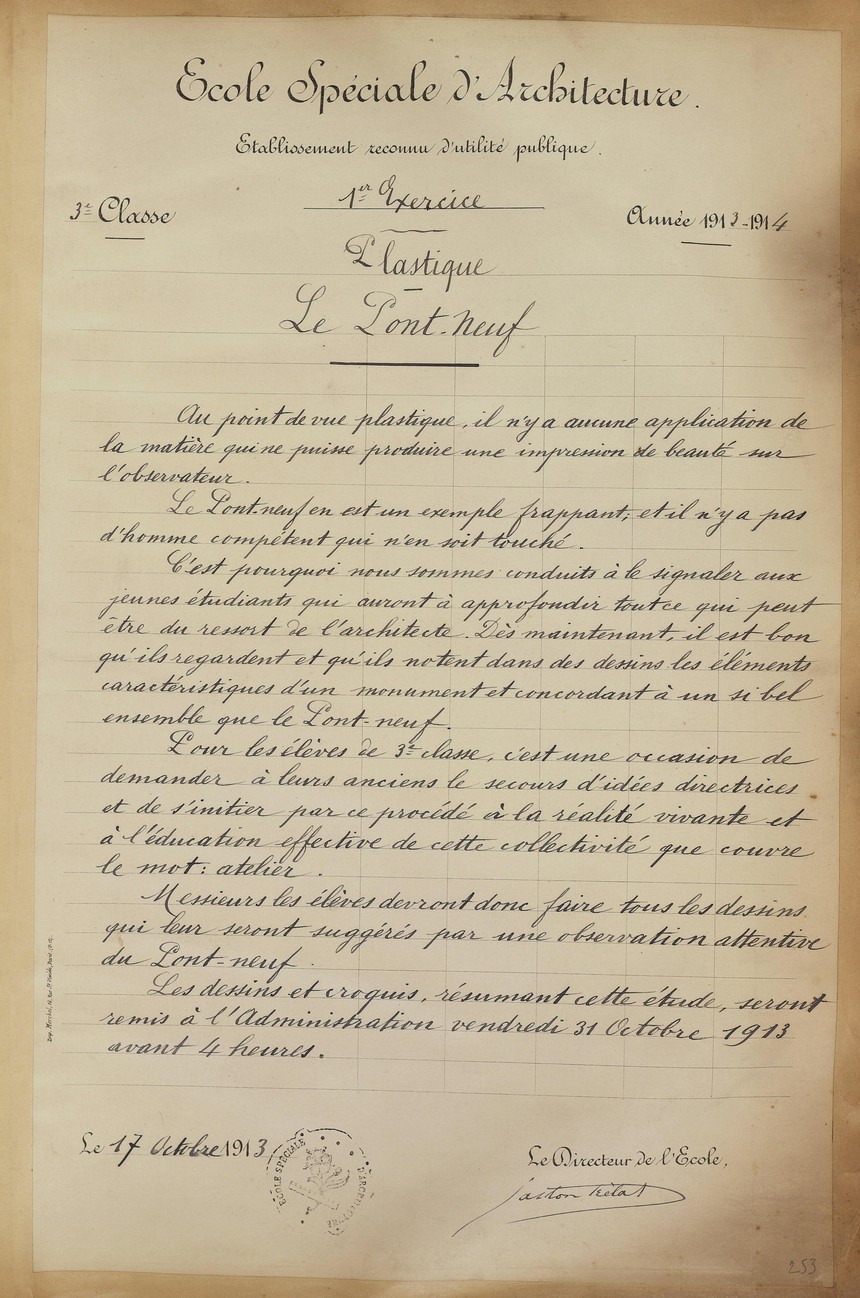 Ecole Spéciale d'Architecture.
Etablissement reconnu d'utilité publique.
3e Classe
1er Exercice
Année 1913-1914
Plastique
Le Pont-neuf
Au point de vue plastique, il n'y a aucune application de
la matière qui ne puisse produire une impression de beauté sur
l'observateur.
Le Pont-neuf en est un exemple frappant, et il n'y a pas
d'homme compétent qui n'en soit touché.
C'est pourquoi nous sommes conduits à le signaler aux
jeunes étudiants qui auront à approfondir tout ce qui peut
être du ressort de l'architecte. Dès maintenant, il est bon
qu'ils regardent et qu'ils notent dans des dessins les éléments
caractéristiques d'un monument et concordant à un si bel
ensemble que le Pont-neuf.
Pour les élèves de 3e classe, c'est une occasion de
demander à leurs anciens le secours d'idées directrices
et de s'initier par ce procédé à la réalité vivante et
à l'éducation effective de cette collectivité que couvre
le mot: atelier.
Messieurs les élèves devront donc faire tous les dessins
qui leur seront suggérés par une observation attentive
du Pont-neuf.
Les dessins et croquis, résumant cette étude, seront
remis à l'Administration vendredi 31 Octobre 1913
avant 4 heures.
Le 17 Octobre 1913
ECOLE SPÉCIALE
D'ARCHITECTURE
Le Directeur de l'Ecole,
Gaston Trélat
253